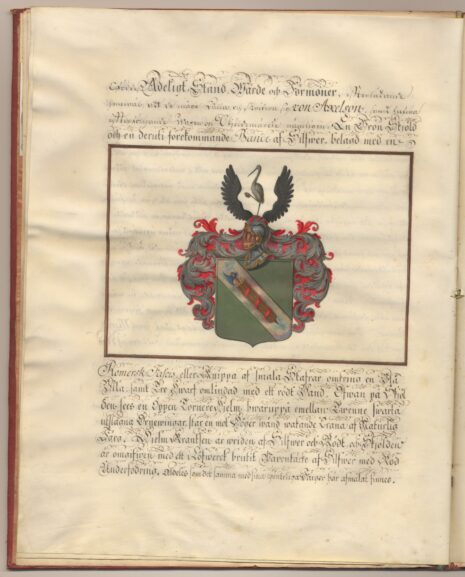 Adeligt Stånd Wärde och Förmoner,
de måge von Axelson,
En Grön Sköld
och en deruti förekommande Bance af Silfwer, belagd med en
Romersk Fasces, eller Knippa af smala Stafrar omkring en Blå
Bila, samt Tre hwarf omlindad med ett rödt Band. Ofwan på Skiöl
den sees en Öppen Tornerer Hielm, hwaruppå emellan Twenne swarta
utslagna Örnewingar, står en mot höger wänd wakande Trana af Naturlig
Färg. Hielm Krantsen är wriden af Silfwer och Rödt och Skölden
är omgifwen med ett i Löfwerck brutit Parentage af Silfwer med Röd
Underfodring, aldeles som det samma med sina egenteliga Färger här afmålat finnes.